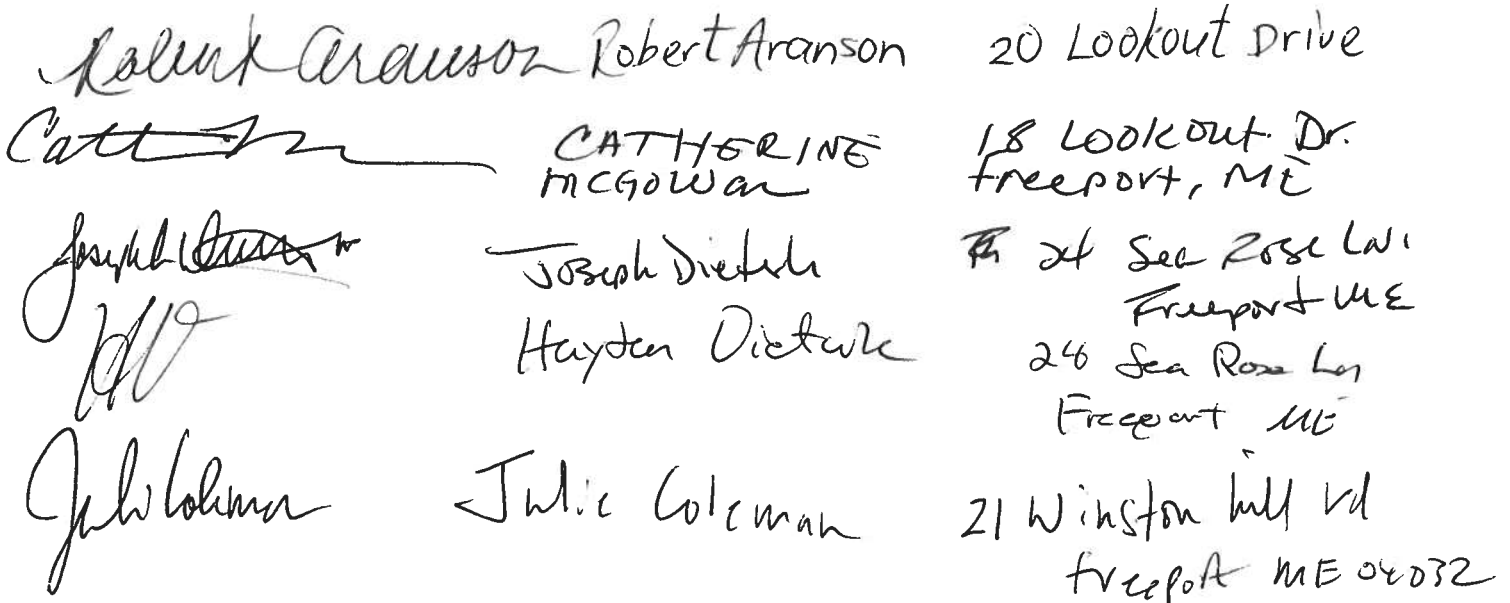 Robert Aranson Robert Aranson 20 Lookout Drive
CATHERINE 18 Lookout Dr.
McGowan Freeport, ME
Joseph Joseph Dieterle 24 Sea Rose Ln.
Freeport ME
Hayden Dieterle 28 Sea Rose Ln
Freeport ME
Julie Coleman Julie Coleman 21 Winston hill rd
freeport ME 04032